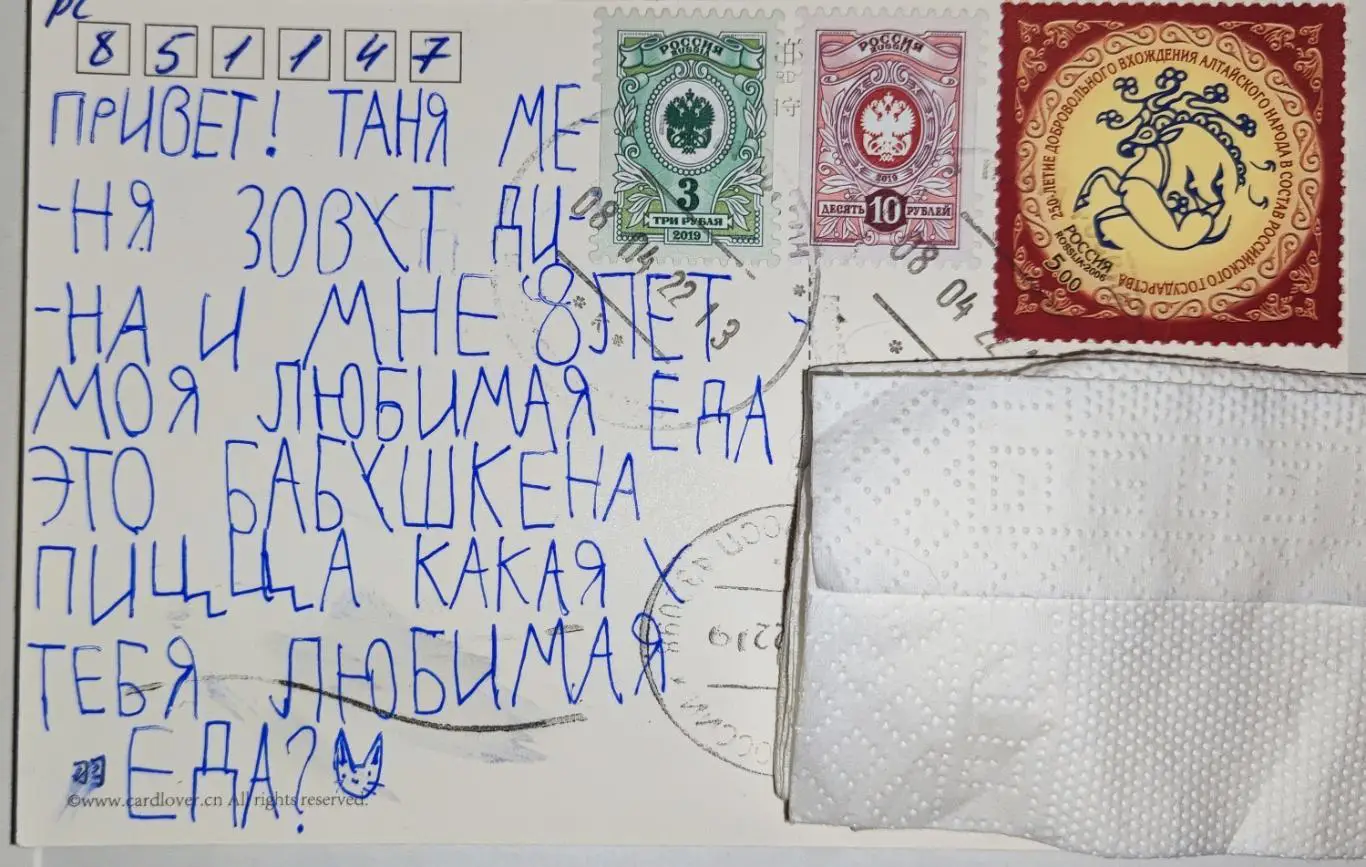 РС
851147
ПРИВЕТ! ТАНЯ МЕ-
-НЯ ЗОВУТ ДИ-
-НА И МНЕ 8 ЛЕТ
МОЯ ЛЮБИМАЯ ЕДА
ЭТО БАБУШКЕНА
ПИЦЦА КАКАЯ У
ТЕБЯ ЛЮБИМАЯ
ЕДА?
©www.cardlover.cn All rights reserved.
РОССИЯ
RUSSIA
3
ТРИ РУБЛЯ
2019
РОССИЯ
RUSSIA
2019
ДЕСЯТЬ 10 РУБЛЕЙ
250-ЛЕТИЕ ДОБРОВОЛЬНОГО ВХОЖДЕНИЯ АЛТАЙСКОГО НАРОДА В СОСТАВ РОССИЙСКОГО ГОСУДАРСТВА
РОССИЯ
ROSSIJA 2006
5.00
08 04 22 13
08 04 22